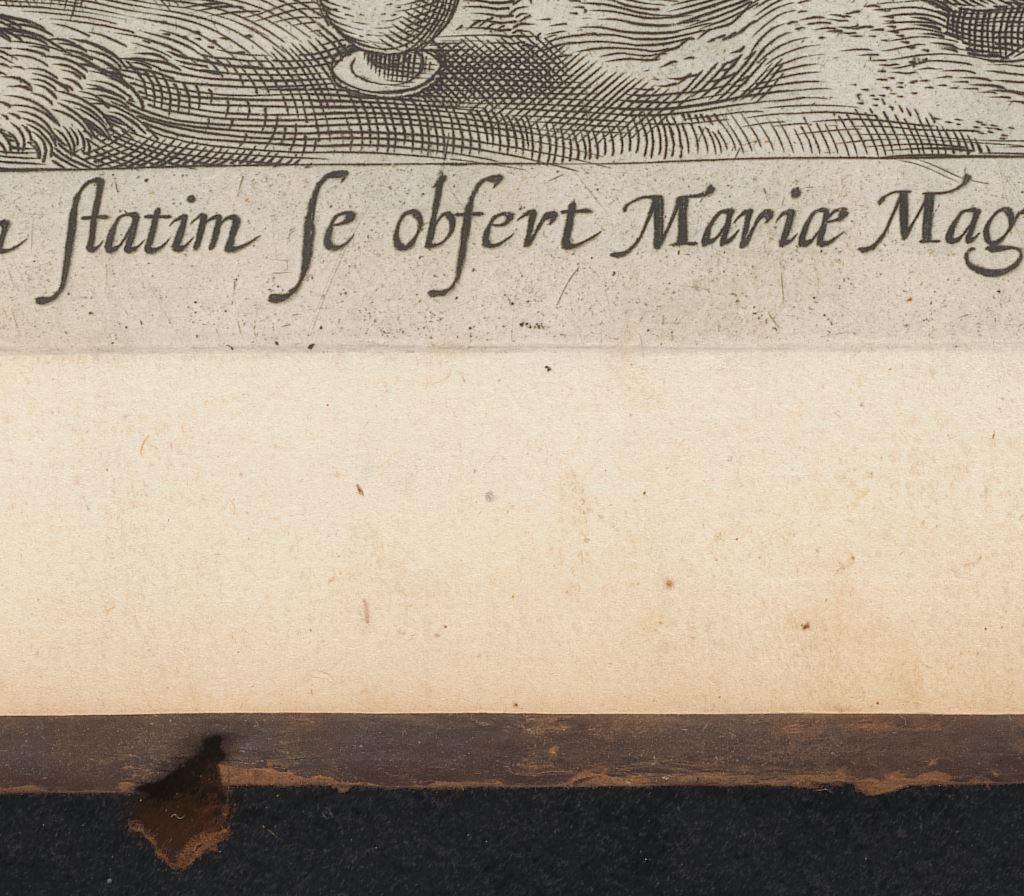 ſtatim ſe obfert Mariæ Mag